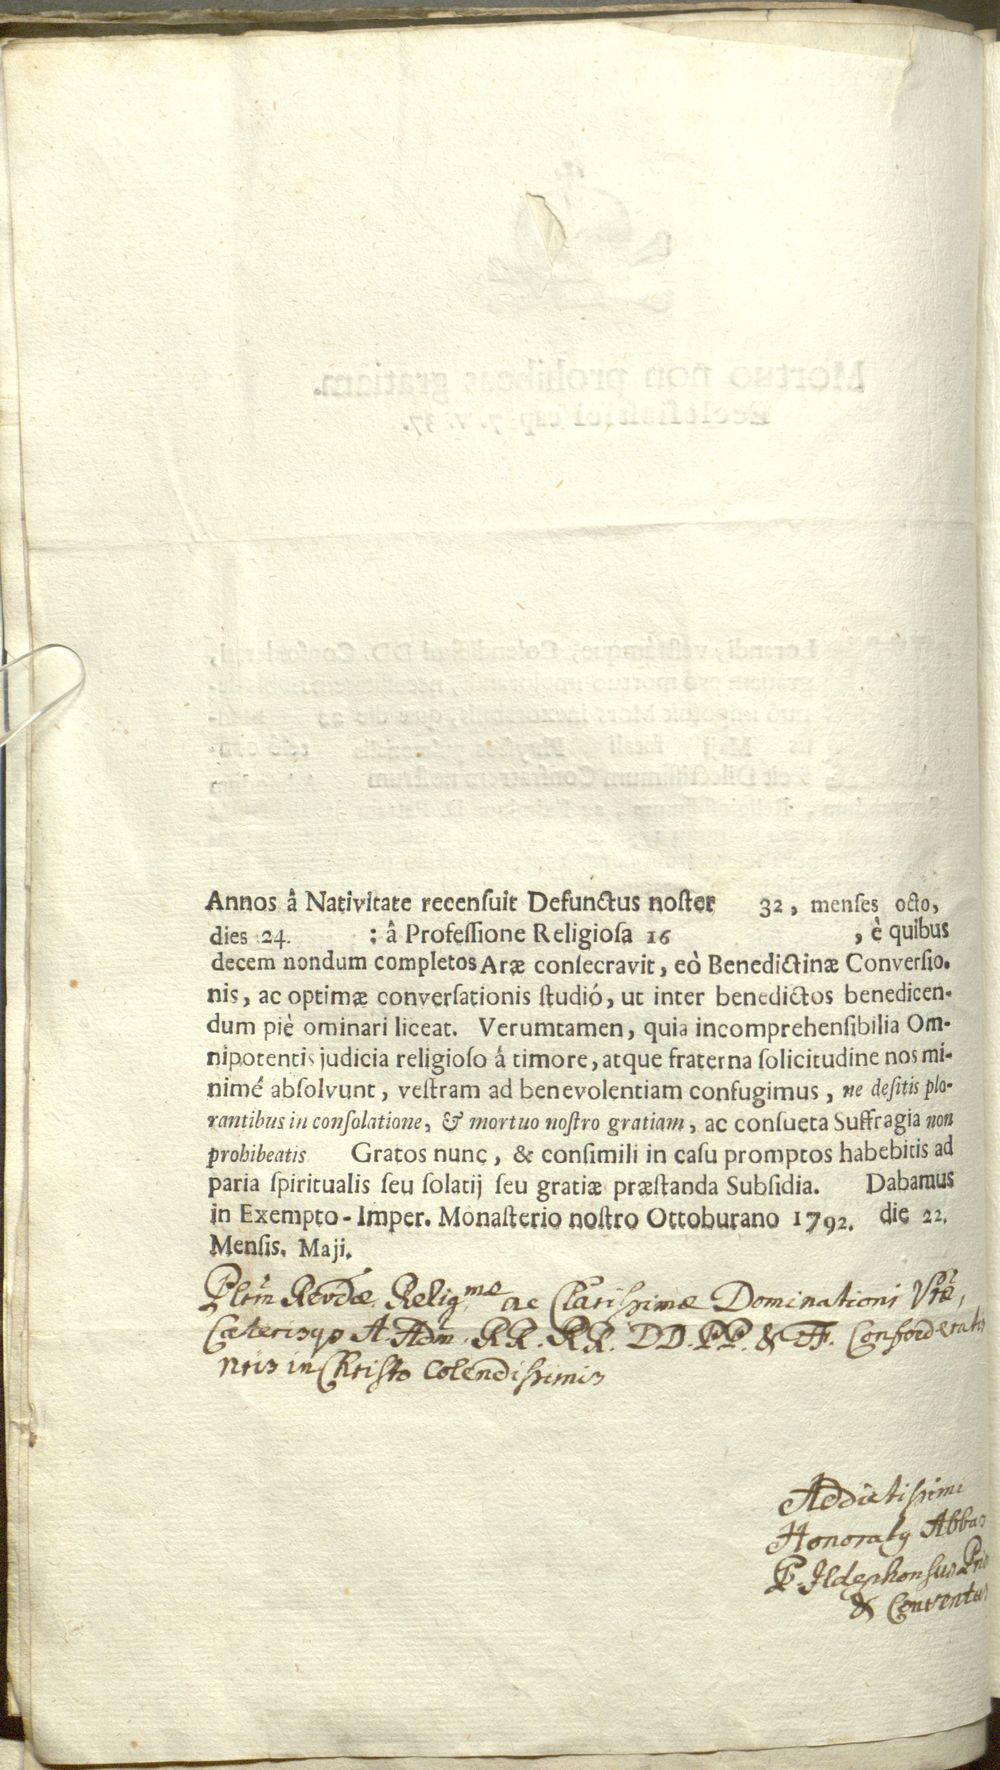 Annos â Nativitate recenſuit Defunctus noſter 32, menſes octo,
dies 24. : â Profeſſione Religioſa 16 , è quibus
decem nondum completos Aræ conſecravit, eò Benedictinæ Converſio-
nis, ac optimæ converſationis ſtudió, ut inter benedictos benedicen-
dum piè ominari liceat. Verumtamen, quia incomprehenſibilia Om-
nipotentis judicia religioſo â timore, atque fraterna ſolicitudine nos mi-
nimé abſolvunt, veſtram ad benevolentiam confugimus, ne deſitis plo-
rantibus in conſolatione, & mortuo noſtro gratiam, ac conſueta Suffragia non
prohibeatis Gratos nunc, & conſimili in caſu promptos habebitis ad
paria ſpiritualis ſeu ſolatij ſeu gratiæ præſtanda Subſidia. Dabamus
in Exempto-Imper. Monaſterio noſtro Ottoburano 1792. die 22.
Menſis. Maji.
Plrm Revdæ. Religmæ ac Clariſſimæ Dominationi Vræ,
Cæterisqȝ A. Adm. RR. RR. DD. PP. & FF. Confœderatis
nris in Chriſto colendiſſimis
Addictiſſimi
Honoratꝰ Abbas
P. Ildephonſus Prior
& Conventus
Mortuo non prohibeas gratiam.
Eccleſiaſtici cap. 7. v. 37.